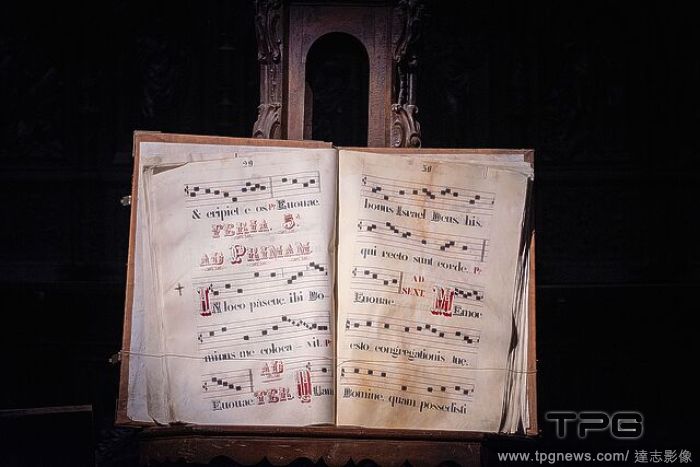 29
& eripiet e os. Ps Euouae.
FERIA. 5ª
AD PRIMAM
IN loco pascuę, ibi Do-
minus me coloca - vit. Ps
Euouae. AD TER. Quam
30
bonus Israel Deus, his,
qui recto sunt corde. Ps
Euouae. AD SEXT. MEmor
esto congregationis tuę,
Domine, quam possedisti
TPG
www.tpgnews.com/ 達志影像